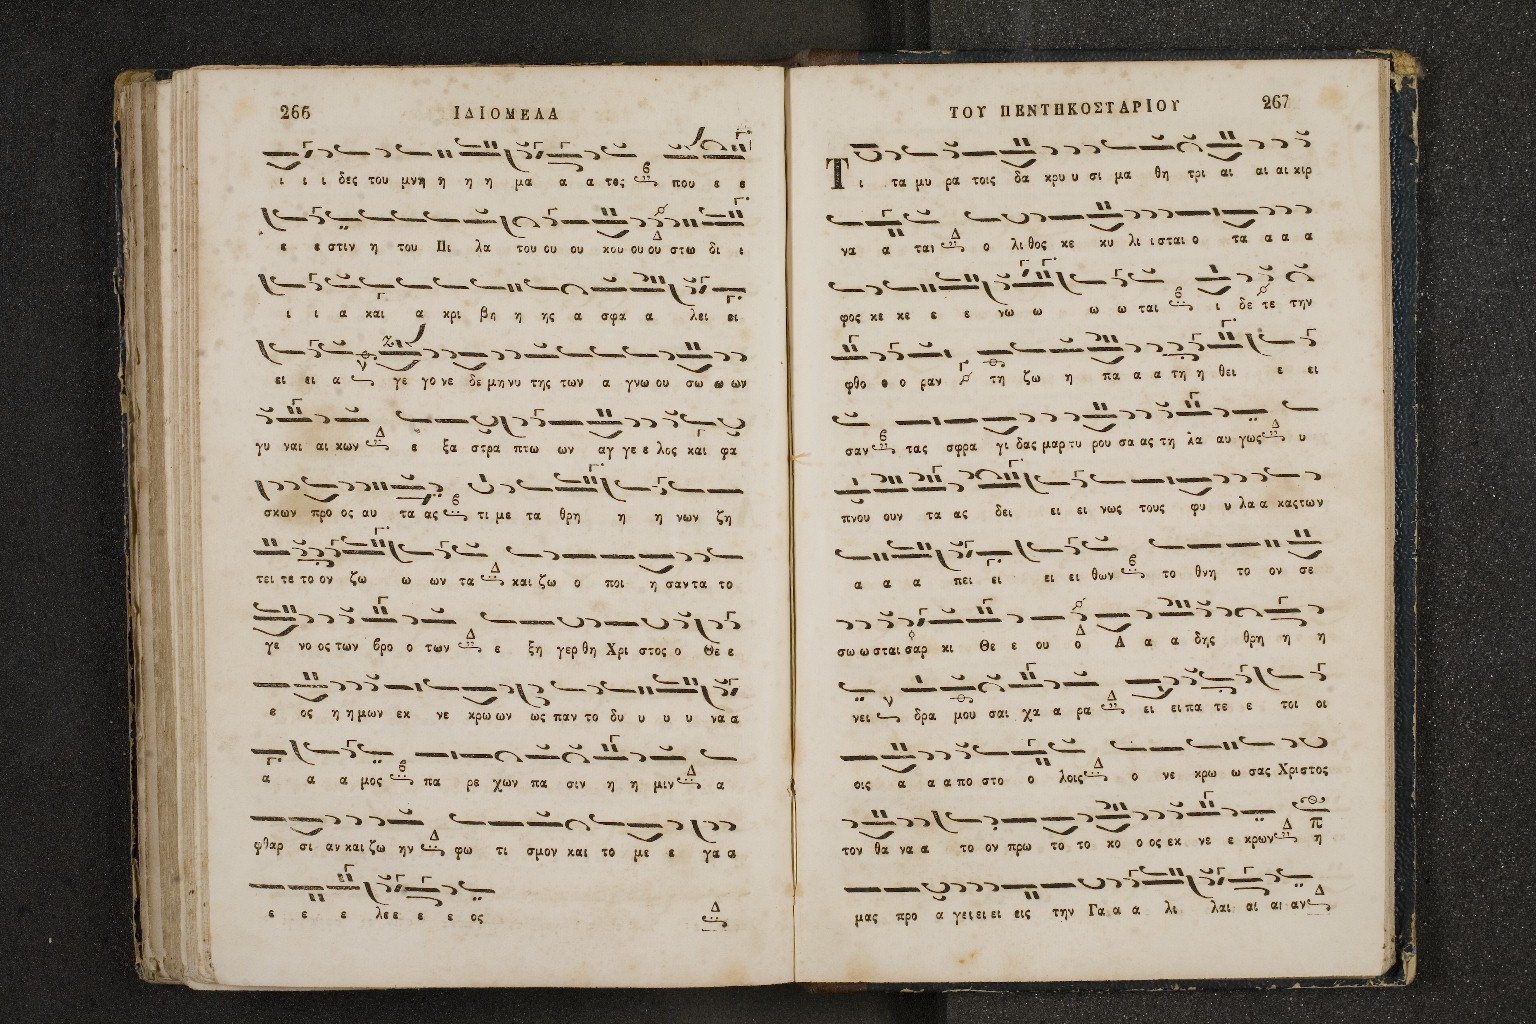 266
ΙΔΙΟΜΕΛΑ
ι ι ι δες του μνη η η η μα α α τος που ε ε
ε ε στιν η του Πι λα του ου ου κου ου ου στω δι ε
ι ι α και α κρι βη η ης α σφα α λει ει
ει ει α γε γο νε δε μη νυ της των α γνω ου σω ω ων
γυ ναι αι κων ε ξα στρα πτω ων αγ γε ε λος και φα
σκων προ ος αυ τα ας τι με τα θρη η η νων ζη
τει τε το ον ζω ω ων τα και ζω ο ποι η σαν τα το
γε νο ος των βρο ο των ε ξη γερ θη Χρι στος ο Θε ε
ε ος η η μων εκ νε κρω ων ως παν το δυ υ υ υ να α
α α α μος πα ρε χων πα σιν η η μιν α
φθαρ σι αν και ζω ην φω τι σμον και το με ε γα α
ε ε ε λε ε ε ε ος
ΤΟΥ ΠΕΝΤΗΚΟΣΤΑΡΙΟΥ
267
Τι τα μυ ρα τοις δα κρυ υ σι μα θη τρι αι αι αι κιρ
να α ται ο λι θος κε κυ λι ι σται ο τα α α α
φος κε κε ε ε νω ω ω ω ται ι δε τε την
φθο ο ο ραν τη ζω η πα α α τη η θει ε ει
σαν τας σφρα γι δας μαρ τυ ρου σα ας τη λα αυ γως υ
πνου ουν τα ας δει ει ει νως τους φυ υ λα α κας των
α α α πει ει ει ει θων το θνη το ον σε
σω ω σται σαρ κι Θε ε ου ο Α α α δης θρη η η
νει δρα μου σαι χα α ρα ει ει πα τε ε τοι οι
οις α α α πο στο ο λοις ο νε κρω ω σας Χριστος
τον θα να α το ον πρω το το κο ο ος εκ νε ε κρων η
μας προ α γει ει ει εις την Γα α α λι λαι αι αι αν